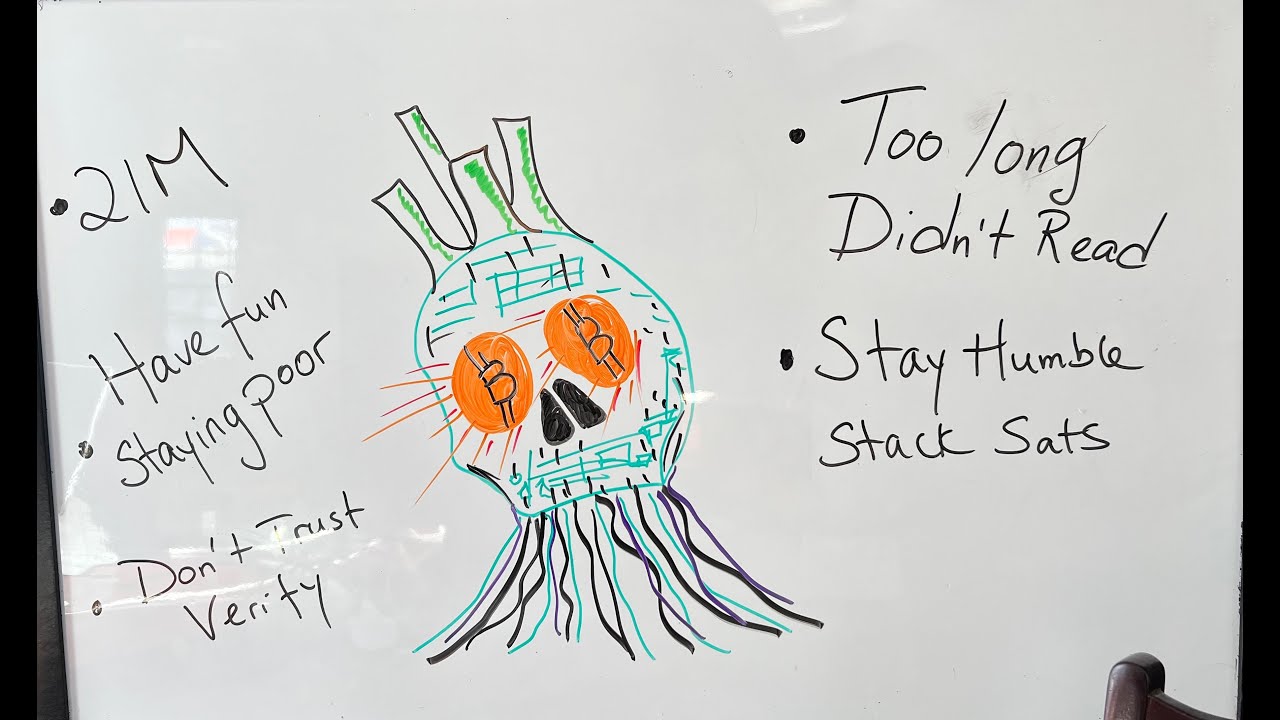 • 21M
Have fun
• Staying poor
• Don't Trust
Verify
• Too long
Didn't Read
• Stay Humble
Stack Sats